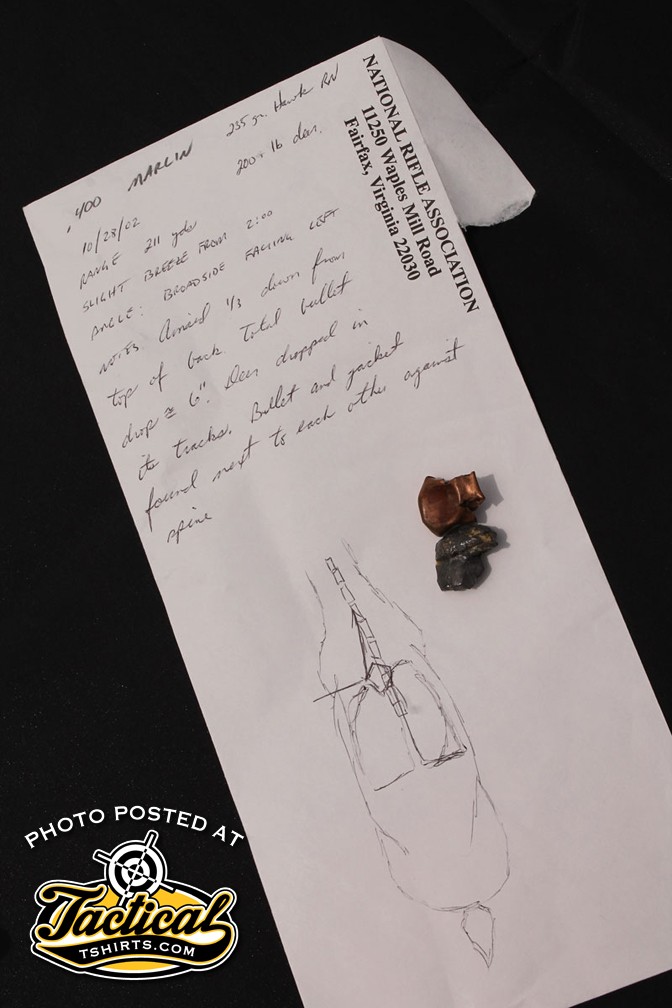 NATIONAL RIFLE ASSOCIATION
11250 Waples Mill Road
Fairfax, Virginia 22030
.400 MARLIN 235 gr. Hawk RN
200+ lb deer.
10/28/02
RANGE 211 yds
SLIGHT BREEZE FROM 2:00
ANGLE: BROADSIDE FACING LEFT
NOTES: Aimed 1/3 down from
top of back. Total bullet
drop ≅ 6". Deer dropped in
its tracks. Bullet and jacket
found next to each other against
spine
PHOTO POSTED AT
Tactical
TSHIRTS.COM